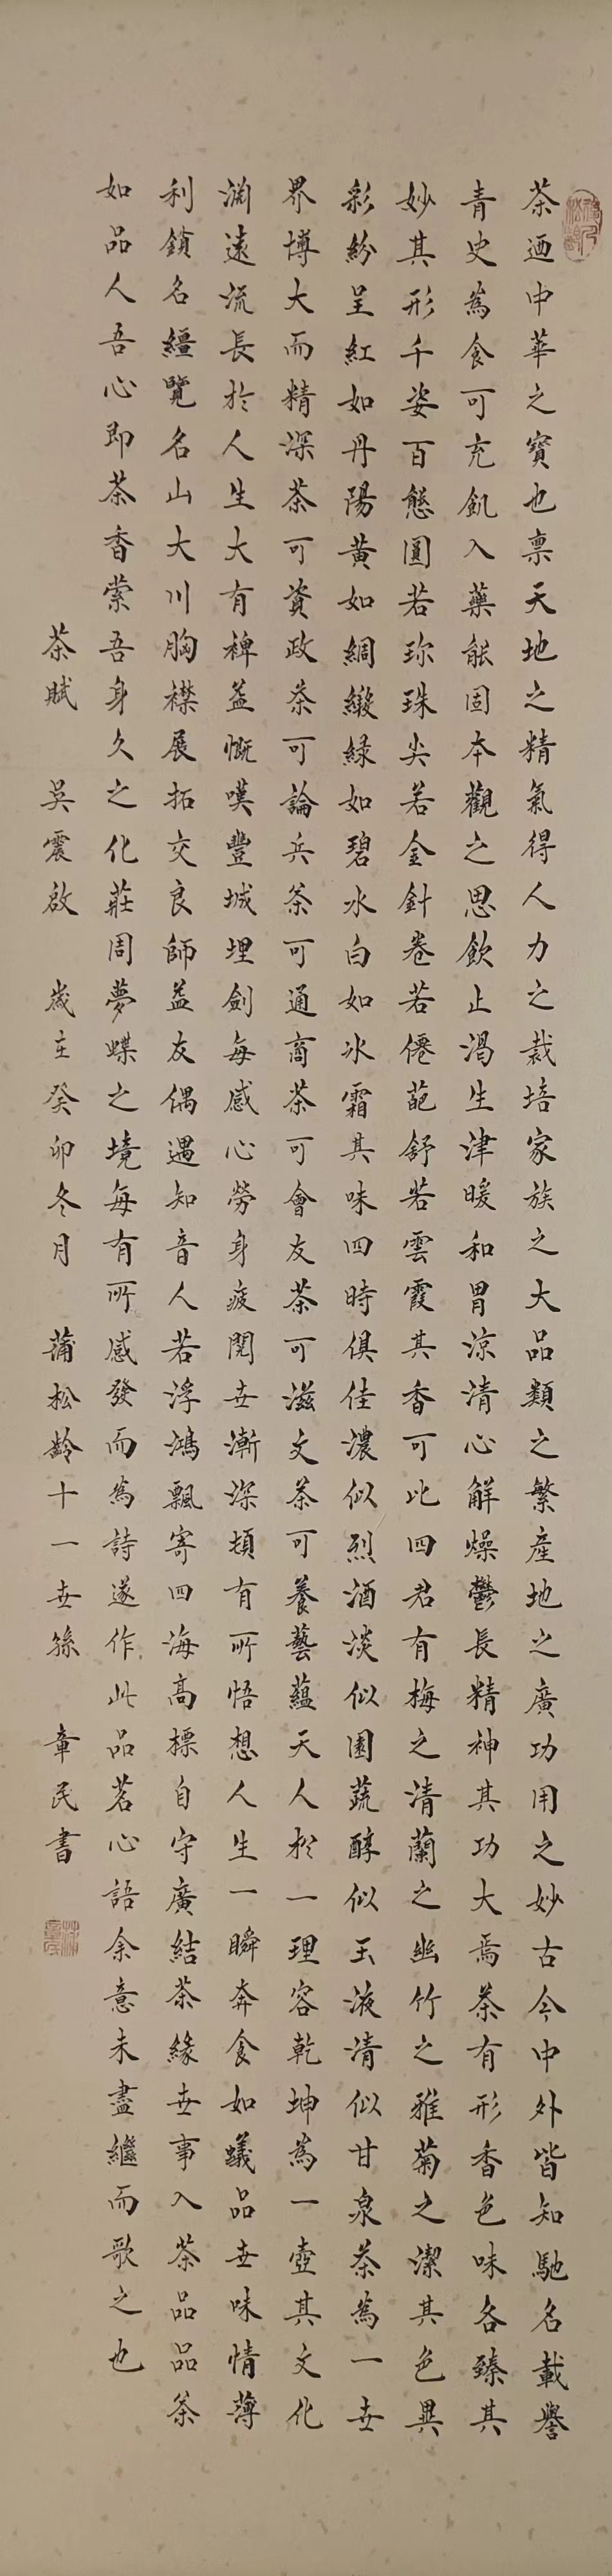 茶迺中華之寶也禀天地之精氣得人力之栽培家族之大品類之繁産地之廣功用之妙古今中外皆知馳名載譽
青史為食可充飢入藥能固本觀之思飲止渴生津暖和胃涼清心解燥鬱長精神其功大焉茶有形香色味各臻其
妙其形千姿百態圓若珍珠尖若金針卷若僊葩舒若雲霞其香可比四君有梅之清蘭之幽竹之雅菊之潔其色異
彩紛呈紅如丹陽黄如綢緞緑如碧水白如冰霜其味四時俱佳濃似烈酒淡似園蔬醇似玉液清似甘泉茶為一世
界博大而精深茶可資政茶可論兵茶可通商茶可會友茶可滋文茶可養藝蘊天人於一理容乾坤為一壺其文化
淵遠流長於人生大有裨益慨嘆豐城埋劍每感心勞身疲閱世漸深頓有所悟想人生一瞬奔食如蟻品世味情薄
利鎖名繮覽名山大川胸襟展拓交良師益友偶遇知音人若浮鴻飄寄四海高標自守廣結茶緣世事入茶品品茶
如品人吾心即茶香縈吾身久之化莊周夢蝶之境每有所感發而為詩遂作此品茗心語余意未盡繼而歌之也
茶賦 吳震啟 歲在癸卯冬月 蒲松齡十一世孫 章民書